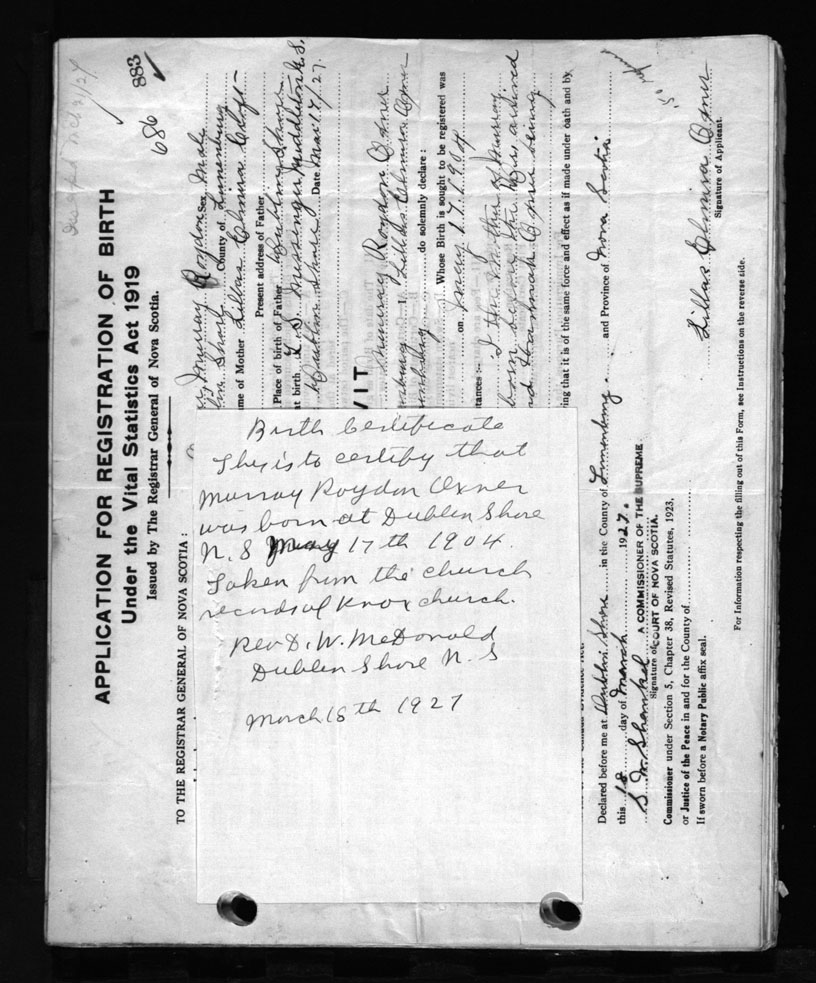 APPLICATION FOR REGISTRATION OF BIRTH
Under the Vital Statistics Act 1919
Issued by The Registrar General of Nova Scotia.
686
883
TO THE REGISTRAR GENERAL OF NOVA SCOTIA :
Murray Roydon Sex Male
Shore County of Lunenburg
me of Mother Lillas Elmira
Present address of Father
Place of birth of Father Dublin Shore
at birth L. S. Messinger Middleton N.S.
Dublin Shore Date Mar 17/27.
VIT
Murray Roydon Oxner
I, Lillas Elmira Oxner
do solemnly declare :
Whose Birth is sought to be registered was
on May 17 1904
tances :- I the mother of Murray
ing that it is of the same force and effect as if made under oath and by
Birth Certificate
This is to certify that
Murray Roydon Oxner
was born at Dublin Shore
N. S May 17th 1904.
Taken from the church
records of Knox church.
Rev D. W. McDonald
Dublin Shore N. S
March 18th 1927
Declared before me at Dublin Shore in the County of Lunenburg. and Province of Nova Scotia
this 18 day of March 1927.
S. M. Shankel A COMMISSIONER OF THE SUPREME
Signature of COURT OF NOVA SCOTIA.
Lillas Elmira Oxner
Signature of Applicant.
Commissioner under Section 5, Chapter 38, Revised Statutes, 1923,
or Justice of the Peace in and for the County of
If sworn before a Notary Public affix seal.
For Information respecting the filling out of this Form, see Instructions on the reverse side.